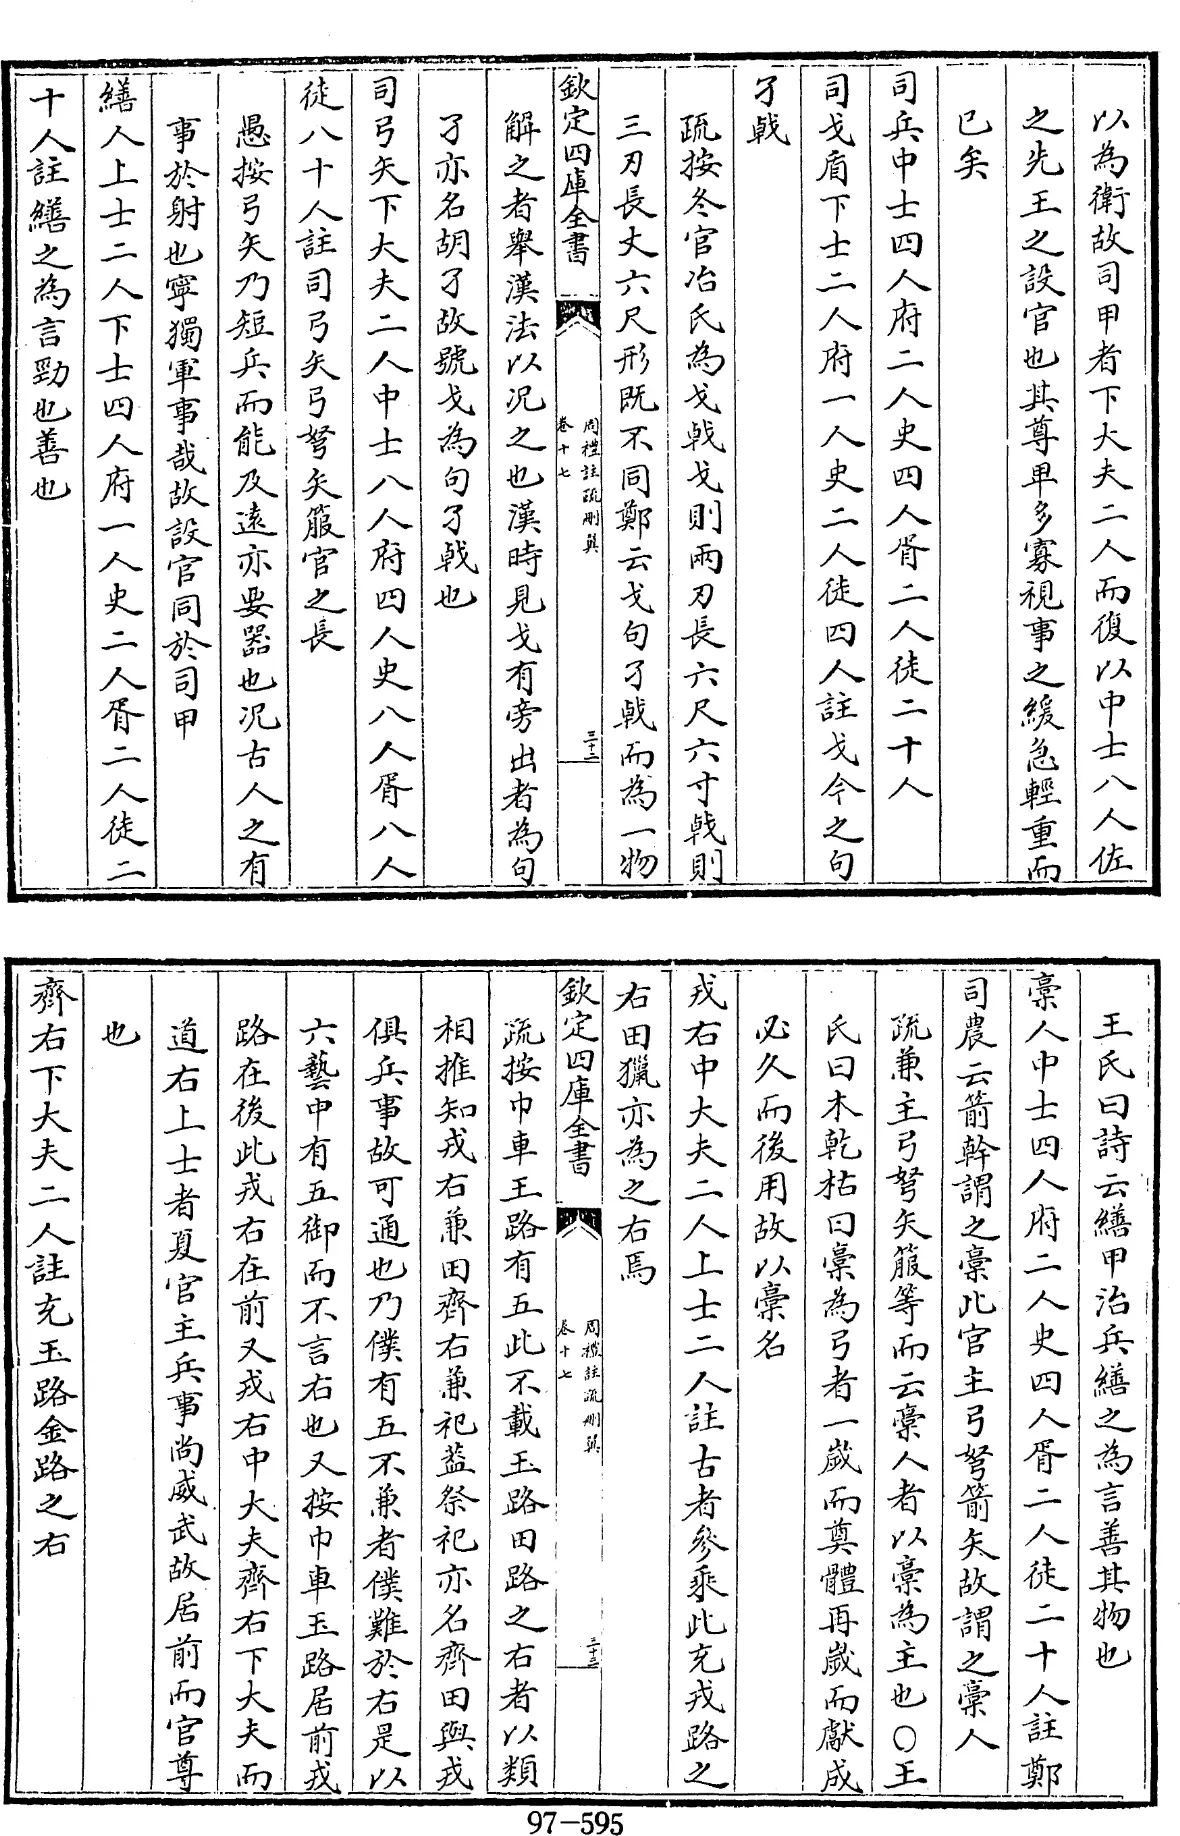 以為衛故司甲者下大夫二人而復以中士八人佐
之先王之設官也其尊卑多寡視事之緩急輕重而
已矣
司兵中士四人府二人史四人胥二人徒二十人
司戈盾下士二人府一人史二人徒四人註戈今之句
孑戟
疏按冬官冶氏為戈戟戈則兩刃長六尺六寸戟則
三刃長丈六尺形既不同鄭云戈句孑戟而為一物
欽定四庫全書
周禮註疏刪翼
卷十七
三十二
解之者舉漢法以况之也漢時見戈有旁出者為句
孑亦名胡孑故號戈為句孑戟也
司弓矢下大夫二人中士八人府四人史八人胥八人
徒八十人註司弓矢弓弩矢箙官之長
愚按弓矢乃短兵而能及遠亦要器也况古人之有
事於射也寧獨軍事哉故設官同於司甲
繕人上士二人下士四人府一人史二人胥二人徒二
十人註繕之為言勁也善也
王氏曰詩云繕甲治兵繕之為言善其物也
槀人中士四人府二人史四人胥二人徒二十人註鄭
司農云箭幹謂之槀此官主弓弩箭矢故謂之槀人
疏兼主弓弩矢箙等而云槀人者以槀為主也○王
氏曰木乾枯曰槀為弓者一歲而奠體再歲而獻成
必久而後用故以槀名
戎右中大夫二人上士二人註古者參乘此充戎路之
右田獵亦為之右焉
欽定四庫全書
周禮註疏刪翼
卷十七
三十三
疏按巾車王路有五此不載玉路田路之右者以類
相推知戎右兼田齊右兼祀葢祭祀亦名齊田與戎
俱兵事故可通也乃僕有五不兼者僕難於右是以
六藝中有五御而不言右也又按巾車玉路居前戎
路在後此戎右在前又戎右中大夫齊右下大夫而
道右上士者夏官主兵事尚威武故居前而官尊
也
齊右下大夫二人註充玉路金路之右
97-595